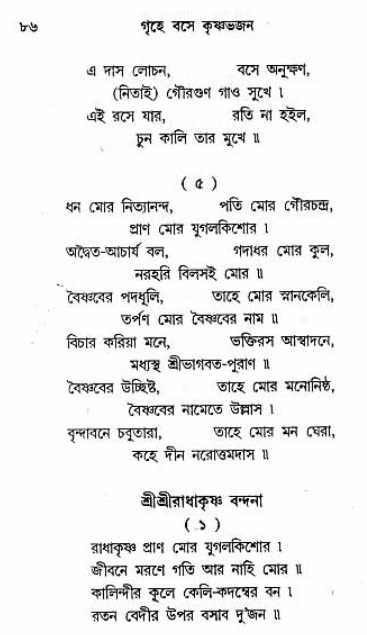 ৮৬ গৃহে বসে কৃষ্ণভজন
এ দাস লোচন, বসে অনুক্ষণ,
(নিতাই) গৌরগুণ গাও সুখে ।
এই রসে যার, রতি না হইল,
চুন কালি তার মুখে ॥
( ৫ )
ধন মোর নিত্যানন্দ, পতি মোর গৌরচন্দ্র,
প্রাণ মোর যুগলকিশোর ।
অদ্বৈত-আচার্য বল, গদাধর মোর কুল,
নরহরি বিলসই মোর ॥
বৈষ্ণবের পদধূলি, তাহে মোর স্নানকেলি,
তর্পণ মোর বৈষ্ণবের নাম ॥
বিচার করিয়া মনে, ভক্তিরস আস্বাদনে,
মধ্যস্থ শ্রীভাগবত-পুরাণ ॥
বৈষ্ণবের উচ্ছিষ্ট, তাহে মোর মনোনিষ্ঠ,
বৈষ্ণবের নামেতে উল্লাস ।
বৃন্দাবনে চবুতারা, তাহে মোর মন ঘেরা,
কহে দীন নরোত্তমদাস ॥
শ্রীশ্রীরাধাকৃষ্ণ বন্দনা
( ১ )
রাধাকৃষ্ণ প্রাণ মোর যুগলকিশোর ।
জীবনে মরণে গতি আর নাহি মোর ॥
কালিন্দীর কূলে কেলি-কদম্বের বন ।
রতন বেদীর উপর বসাব দু'জন ॥